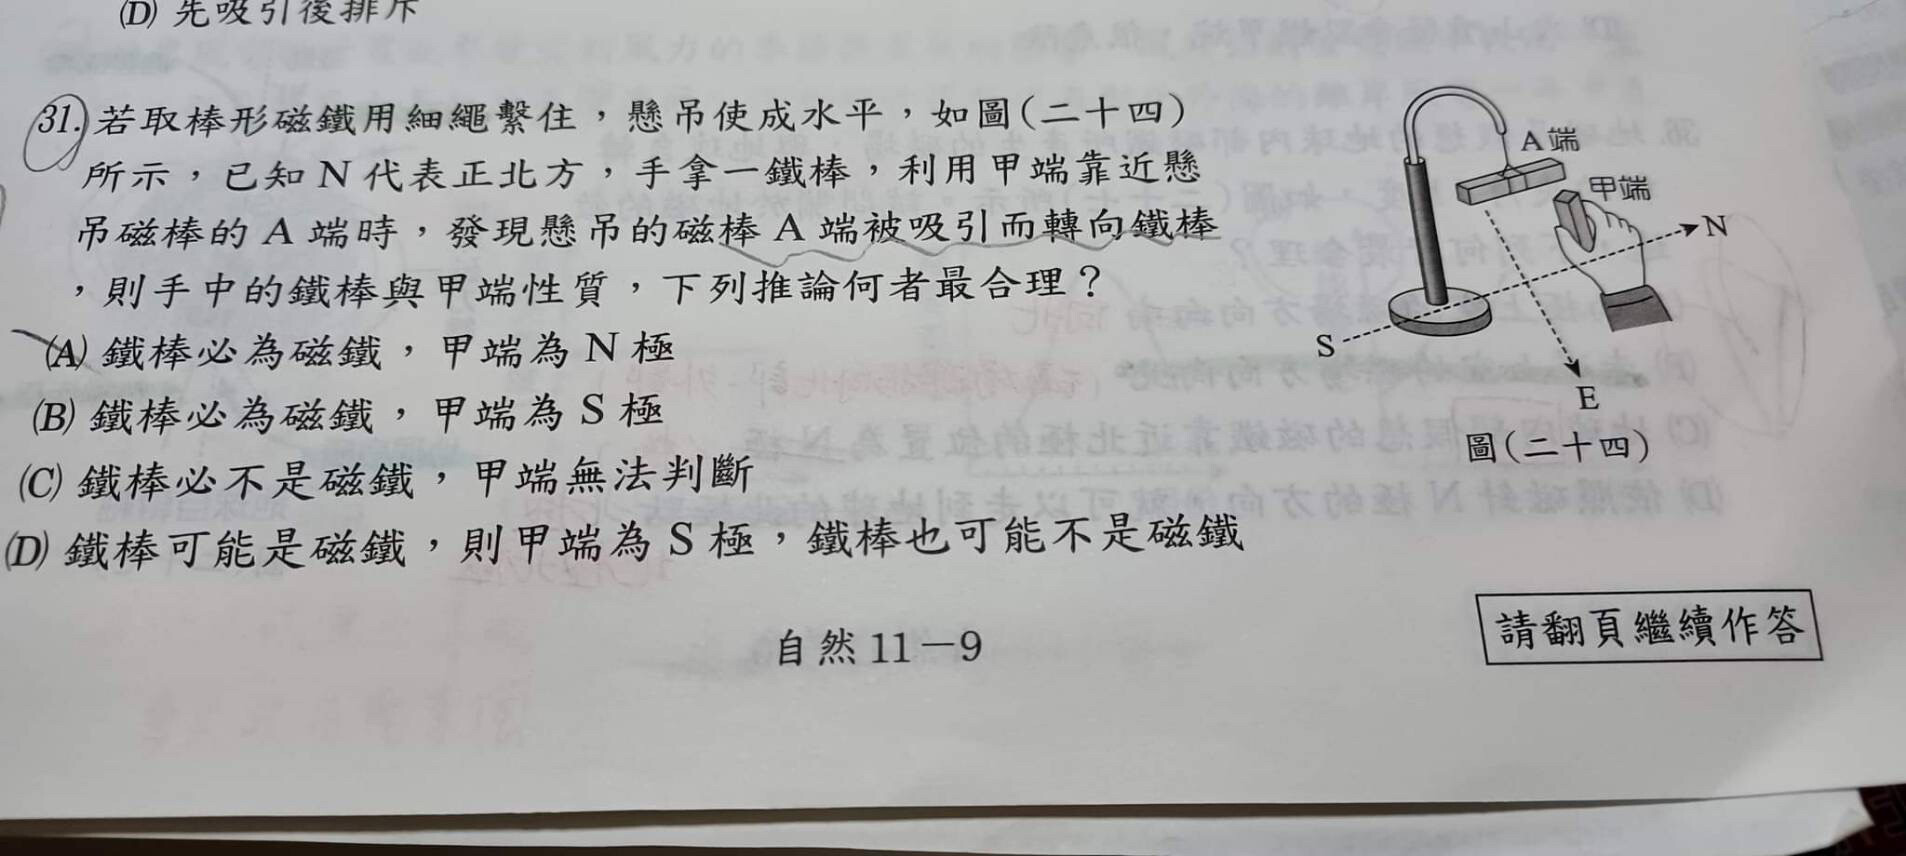 (D) 先吸引後排斥
31. 若取棒形磁鐵用細繩繫住，懸吊使成水平，如圖(二十四)
所示，已知 N 代表正北方，手拿一鐵棒，利用甲端靠近懸
吊磁棒的 A 端時，發現懸吊的磁棒 A 端被吸引而轉向鐵棒
，則手中的鐵棒與甲端性質，下列推論何者最合理？
(A) 鐵棒必為磁鐵，甲端為 N 極
(B) 鐵棒必為磁鐵，甲端為 S 極
(C) 鐵棒必不是磁鐵，甲端無法判斷
(D) 鐵棒可能是磁鐵，則甲端為 S 極，鐵棒也可能不是磁鐵
A 端
甲端
N
S
E
圖(二十四)
自然 11－9
請翻頁繼續作答